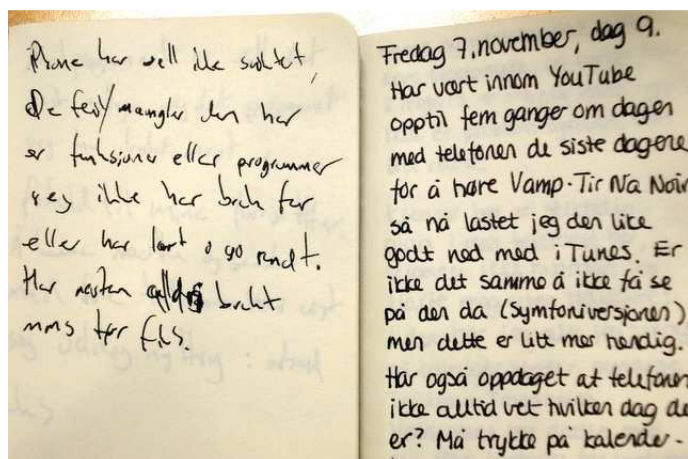 iPhone har vell ikke sviktet,
De feil/mangler den har
er funksjoner eller programmer
jeg ikke har bruk for
eller har lært å gå rundt.
Har nesten aldri brukt
mms før f.eks.
Fredag 7. november, dag 9.
Har vært innom YouTube
opptil fem ganger om dagen
med telefonen de siste dagene
for å høre Vamp-Tir Na Noir
så nå lastet jeg den like
godt ned med iTunes. Er
ikke det samme å ikke få se
på den da (Symfoniversjonen)
men dette er litt mer hendig.
Har også oppdaget at telefonen
ikke alltid vet hvilken dag de
er? Må trykke på kalender-